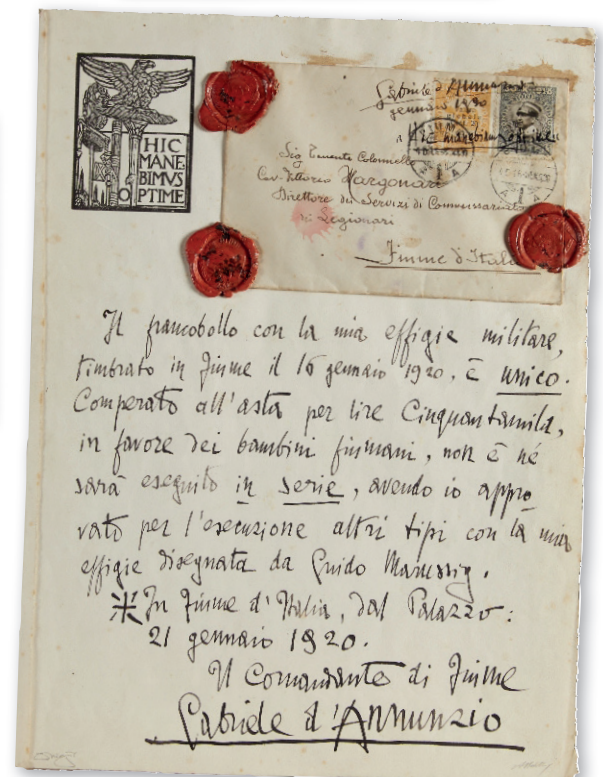 HIC
MANE
BIMVS
OPTIME
Gabriele d'Annunzio
gennaio 1920
Hic manebimus optime
Sig Tenente Colonnello
Cav. Vittorio Margonari
Direttore dei Servizi di Commissariato
dei Legionari
Fiume d'Italia
Il francobollo con la mia effigie militare,
timbrato in Fiume il 16 gennaio 1920, è unico.
Comperato all'asta per lire Cinquantamila,
in favore dei bambini fiumani, non è né
sarà eseguito in serie, avendo io appro
vato per l'esecuzione altri tipi con la mia
effigie disegnata da Guido Marussig.
In Fiume d'Italia, dal Palazzo:
21 gennaio 1920.
Il Comandante di Fiume
Gabriele d'Annunzio